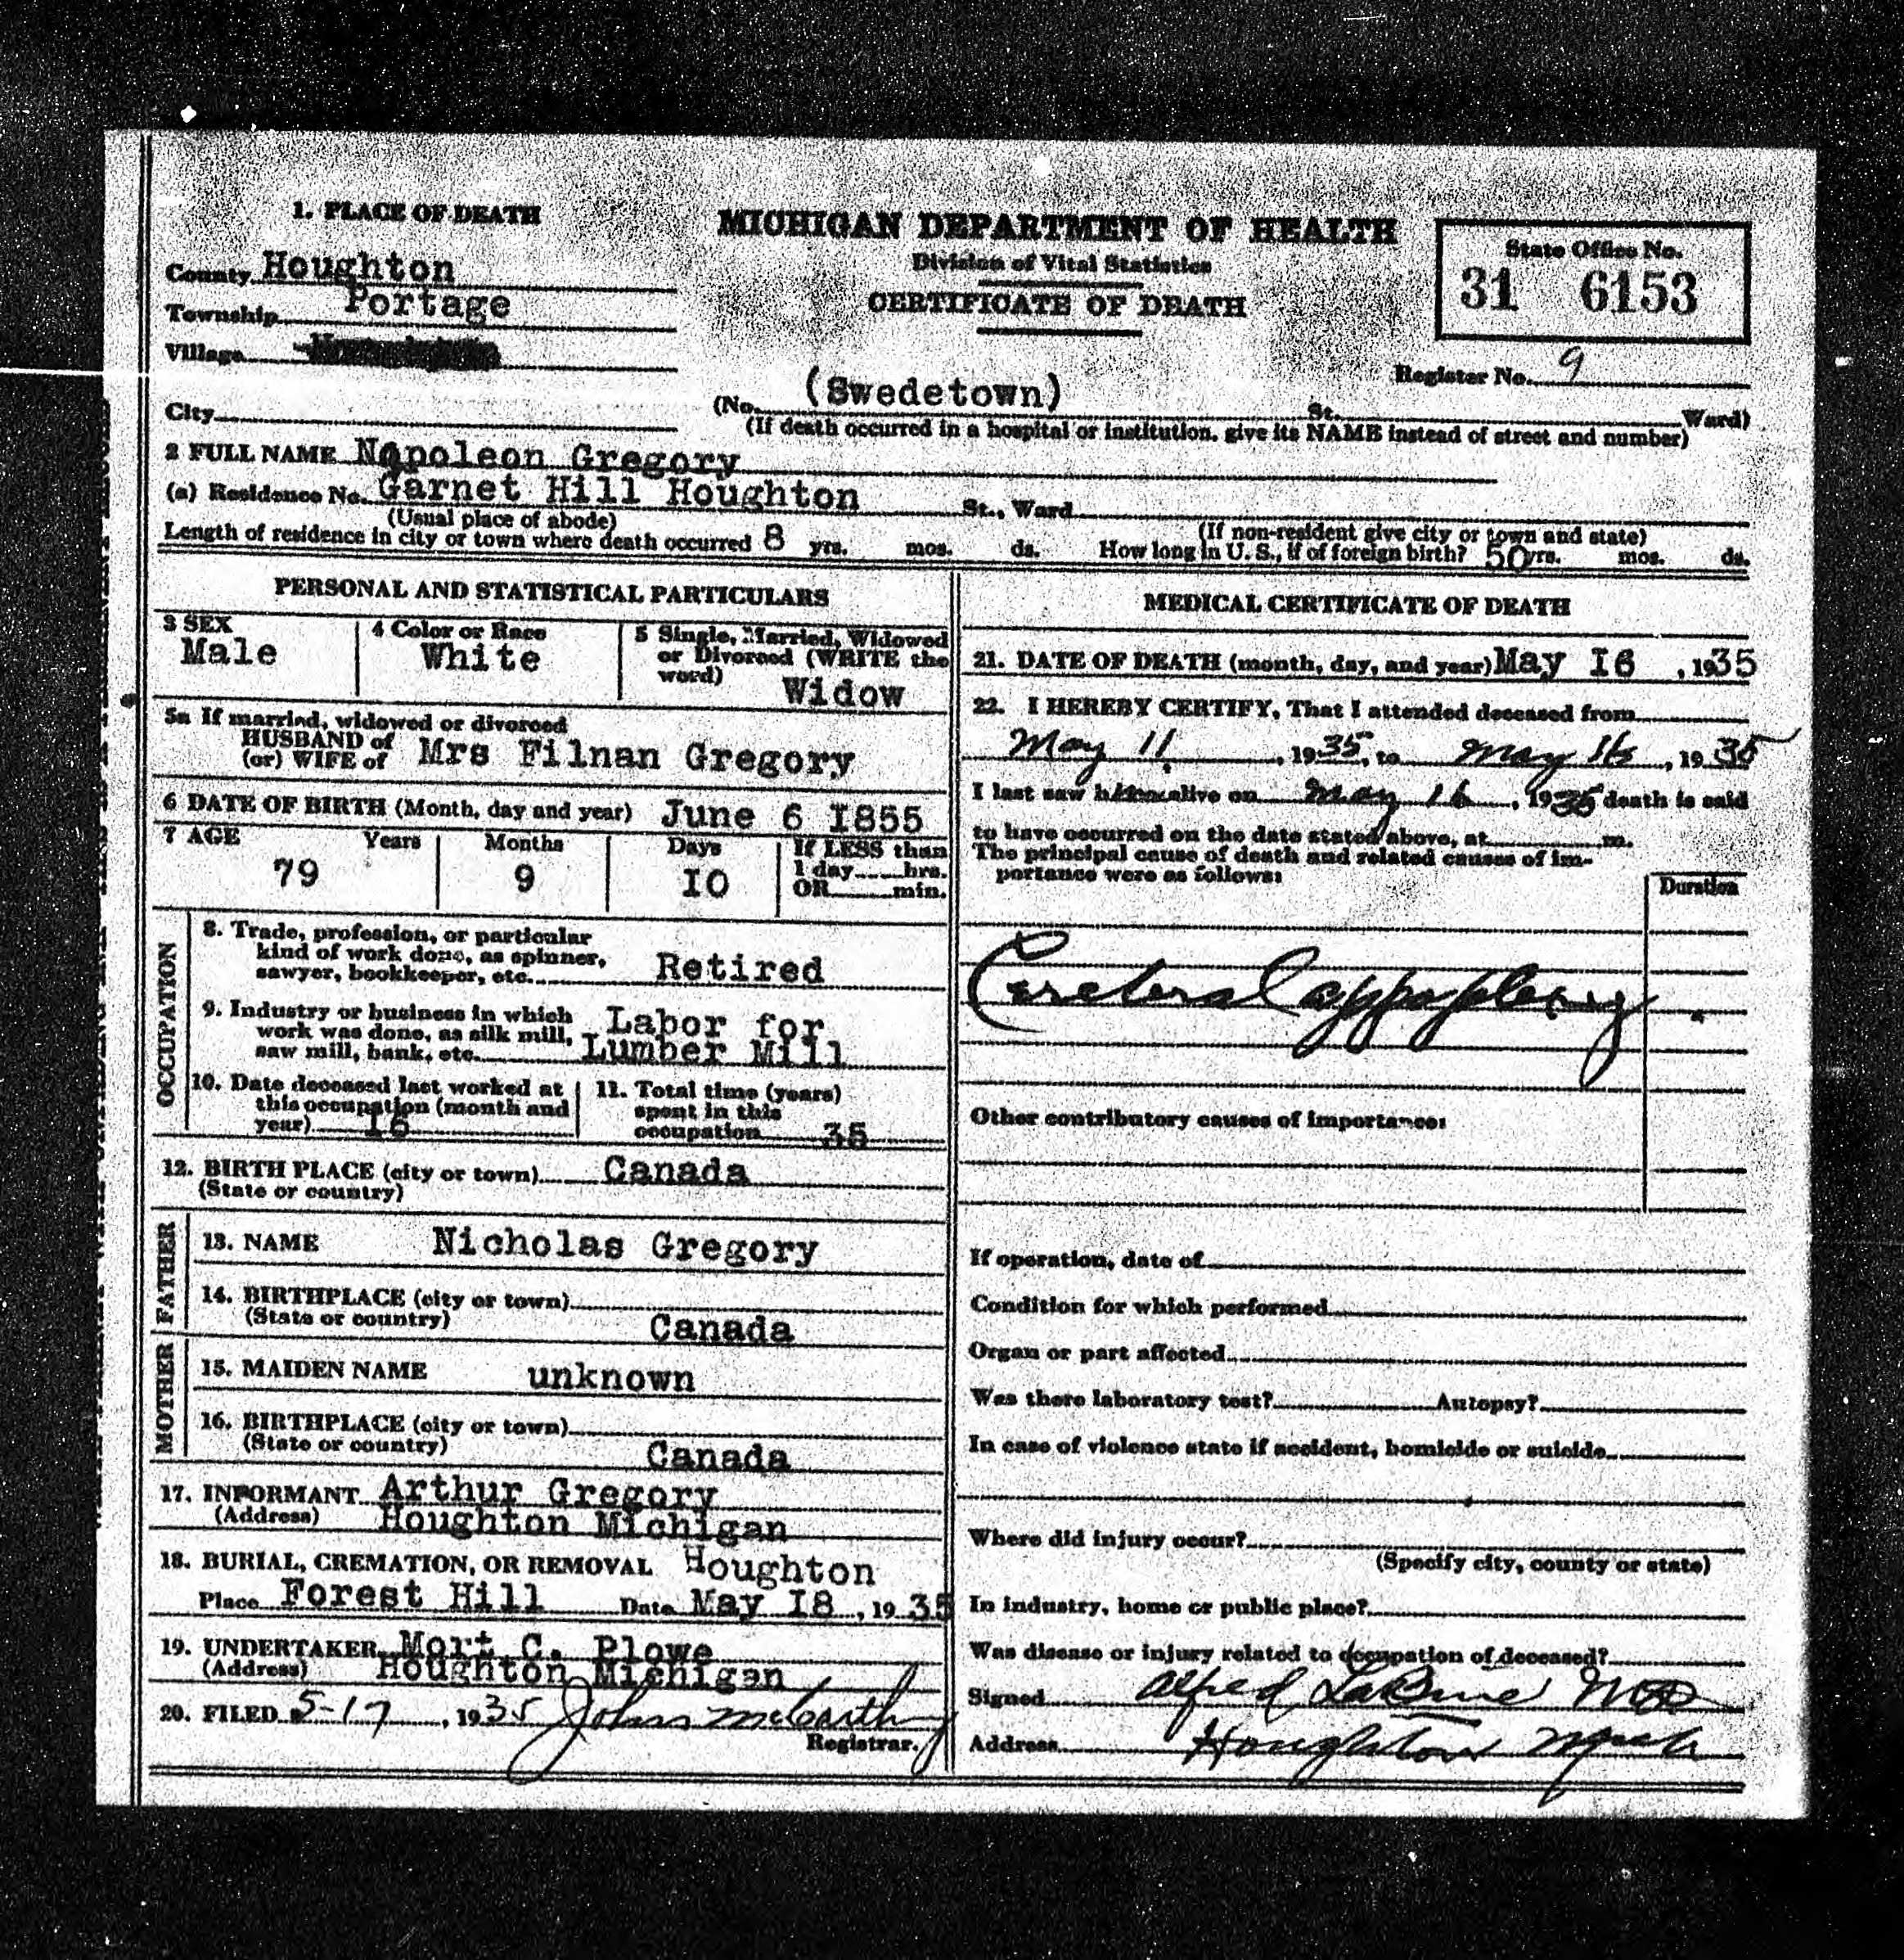 1. PLACE OF DEATH
County Houghton
Township Portage
Village
City
MICHIGAN DEPARTMENT OF HEALTH
Division of Vital Statistics
CERTIFICATE OF DEATH
State Office No.
31 6153
Register No. 9
(No. (Swedetown) St. Ward)
(If death occurred in a hospital or institution. give its NAME instead of street and number)
2 FULL NAME Napoleon Gregory
(a) Residence No. Garnet Hill Houghton St., Ward
(Usual place of abode) (If non-resident give city or town and state)
Length of residence in city or town where death occurred 8 yrs. mos. ds. How long in U. S., if of foreign birth? 50 yrs. mos. ds.
PERSONAL AND STATISTICAL PARTICULARS
3 SEX
Male
4 Color or Race
White
5 Single, Married, Widowed
or Divorced (WRITE the
word)
Widow
5a If married, widowed or divorced
HUSBAND of
(or) WIFE of Mrs Filnan Gregory
6 DATE OF BIRTH (Month, day and year) June 6 1855
7 AGE Years Months Days If LESS than
1 day hrs.
OR min.
79 9 10
OCCUPATION
8. Trade, profession, or particular
kind of work done, as spinner,
sawyer, bookkeeper, etc. Retired
9. Industry or business in which
work was done, as silk mill,
saw mill, bank, etc. Labor for
Lumber Mill
10. Date deceased last worked at
this occupation (month and
year) 16
11. Total time (years)
spent in this
occupation 35
12. BIRTH PLACE (city or town) Canada
(State or country)
FATHER
13. NAME Nicholas Gregory
14. BIRTHPLACE (city or town)
(State or country) Canada
MOTHER
15. MAIDEN NAME unknown
16. BIRTHPLACE (city or town)
(State or country) Canada
17. INFORMANT Arthur Gregory
(Address) Houghton Michigan
18. BURIAL, CREMATION, OR REMOVAL Houghton
Place Forest Hill Date May 18, 1935
19. UNDERTAKER Mort C. Plowe
(Address) Houghton Michigan
20. FILED 5-17, 1935 John McCarthy
Registrar.
MEDICAL CERTIFICATE OF DEATH
21. DATE OF DEATH (month, day, and year) May 16, 1935
22. I HEREBY CERTIFY, That I attended deceased from
May 11, 1935, to May 16, 1935
I last saw him alive on May 16, 1935 death is said
to have occurred on the date stated above, at m.
The principal cause of death and related causes of im-
portance were as follows:
Duration
Cerebral appoplexy
Other contributory causes of importance:
If operation, date of
Condition for which performed
Organ or part affected
Was there laboratory test? Autopsy?
In case of violence state if accident, homicide or suicide
Where did injury occur?
(Specify city, county or state)
In industry, home or public place?
Was disease or injury related to occupation of deceased?
Signed Alfred LaBine MD
Address Houghton Mich